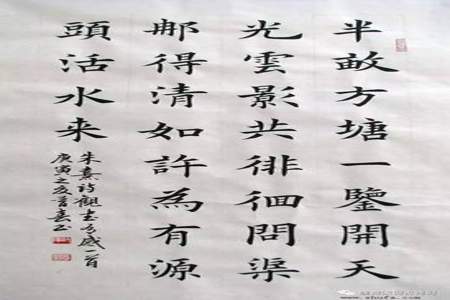 半畝方塘一鑒開天
光雲影共徘徊問渠
那得清如許為有源
頭活水来
朱熹詩觀书有感一首
庚寅之